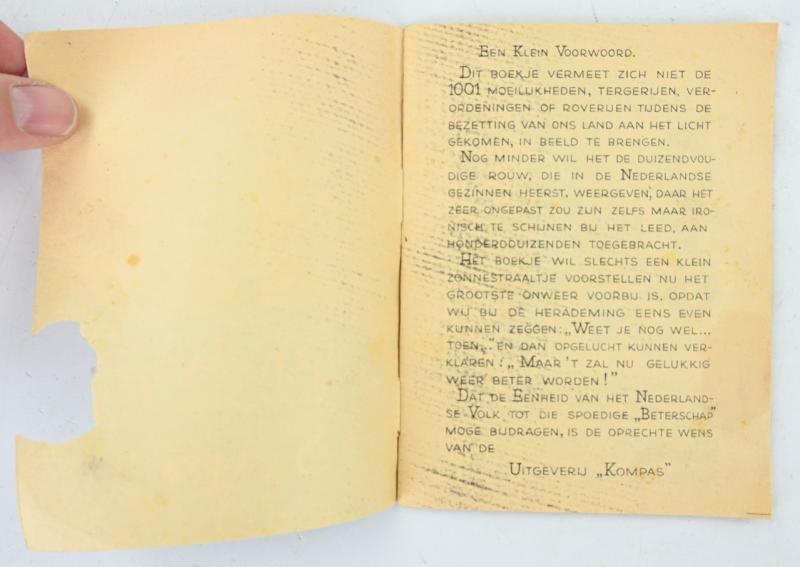 Een Klein Voorwoord.
Dit boekje vermeet zich niet de
1001 moeilijkheden, tergerijen, ver-
ordeningen of roverijen tijdens de
bezetting van ons land aan het licht
gekomen, in beeld te brengen.
Nog minder wil het de duizendvou-
dige rouw, die in de Nederlandse
gezinnen heerst, weergeven, daar het
zeer ongepast zou zijn zelfs maar iro-
nisch te schijnen bij het leed, aan
honderdduizenden toegebracht.
Het boekje wil slechts een klein
zonnestraaltje voorstellen nu het
grootste onweer voorbij is, opdat
wij bij de herademing eens even
kunnen zeggen: „Weet je nog wel...
toen..." en dan opgelucht kunnen ver-
klaren: „Maar 't zal nu gelukkig
weer beter worden!"
Dat de Eenheid van het Nederland-
se Volk tot die spoedige „Beterschap"
moge bijdragen, is de oprechte wens
van de
Uitgeverij „Kompas"